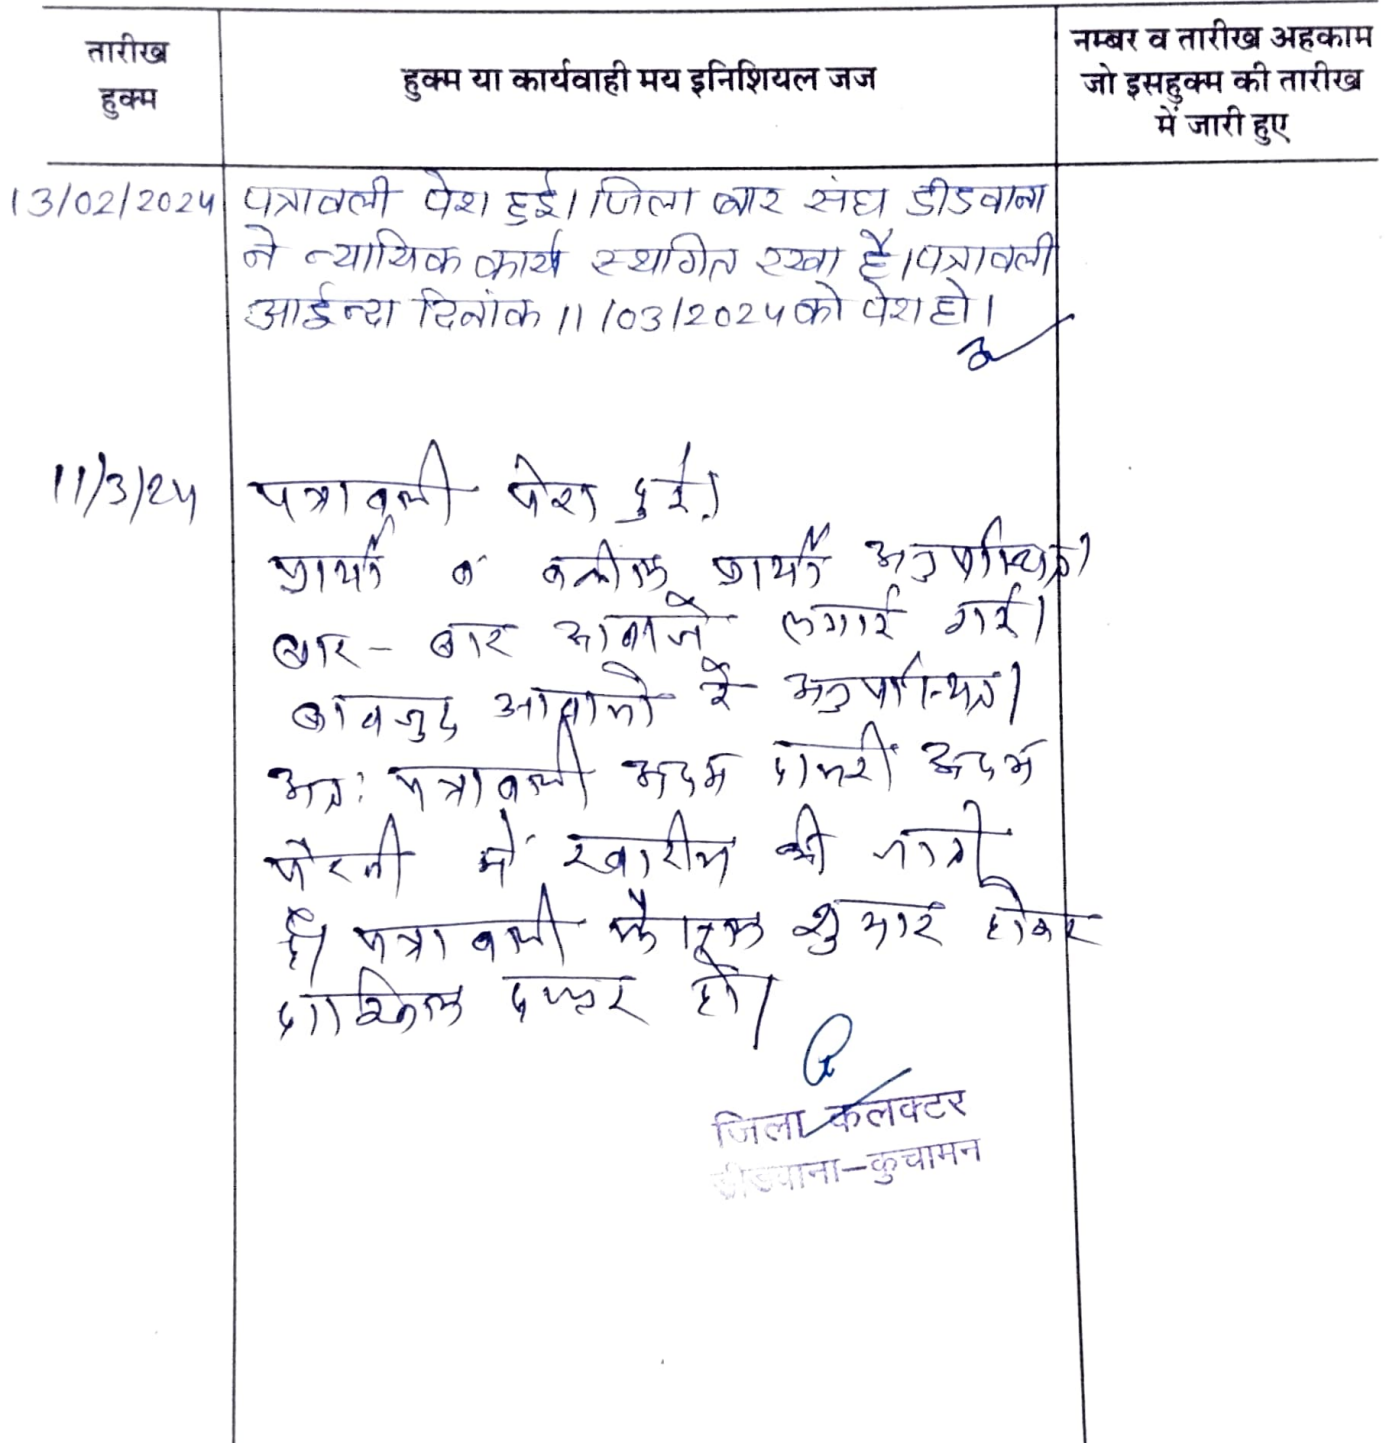 तारीख
हुक्म
हुक्म या कार्यवाही मय इनिशियल जज
नम्बर व तारीख अहकाम
जो इसहुक्म की तारीख
में जारी हुए
13/02/2024 पत्रावली पेश हुई। जिला बार संघ डीडवाना
ने न्यायिक कार्य स्थगित रखा है। पत्रावली
आईन्दा दिनांक 11/03/2024 को पेश हो।
11/3/24 पत्रावली पेश हुई।
प्रार्थी व वकील प्रार्थी अनुपस्थित।
बार-बार आवाजे लगाई गई।
बावजुद आवाजो के अनुपस्थित।
अतः पत्रावली अदम हाजरी अदम
पैरवी में खारीज की जाती
है। पत्रावली फैसल शुमार होकर
दाखिल दफ्तर हो।
जिला कलक्टर
डीडवाना-कुचामन